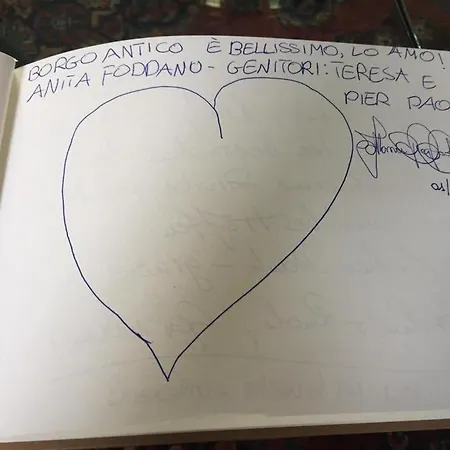 BORGO ANTICO È BELLISSIMO, LO AMO!
ANITA FODDANU - GENITORI: TERESA E
PIER PAO